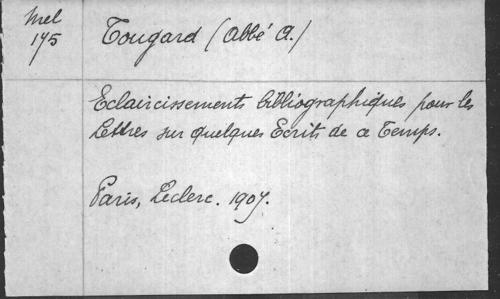 Mel
175
Tougard (Abbé A.)
Eclaircissements bibliographiques pour les
Lettres sur quelques Ecrits de ce Temps.
Paris, Leclerc. 1907.